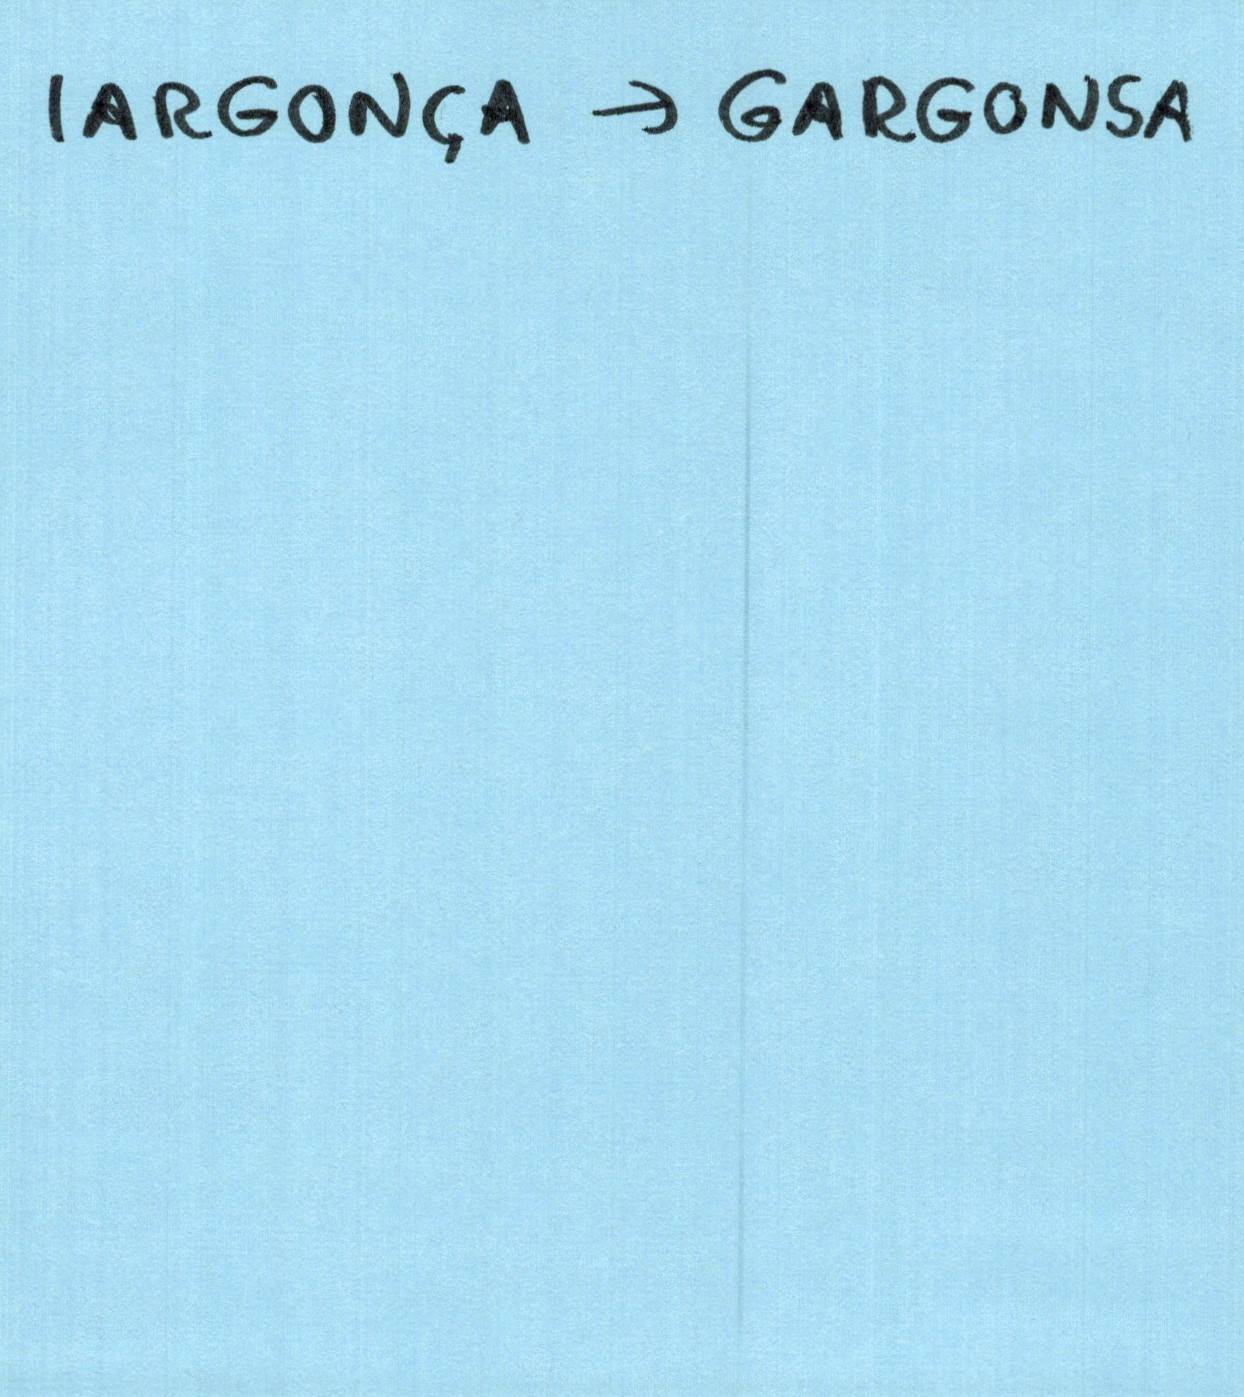 IARGONÇA → GARGONSA